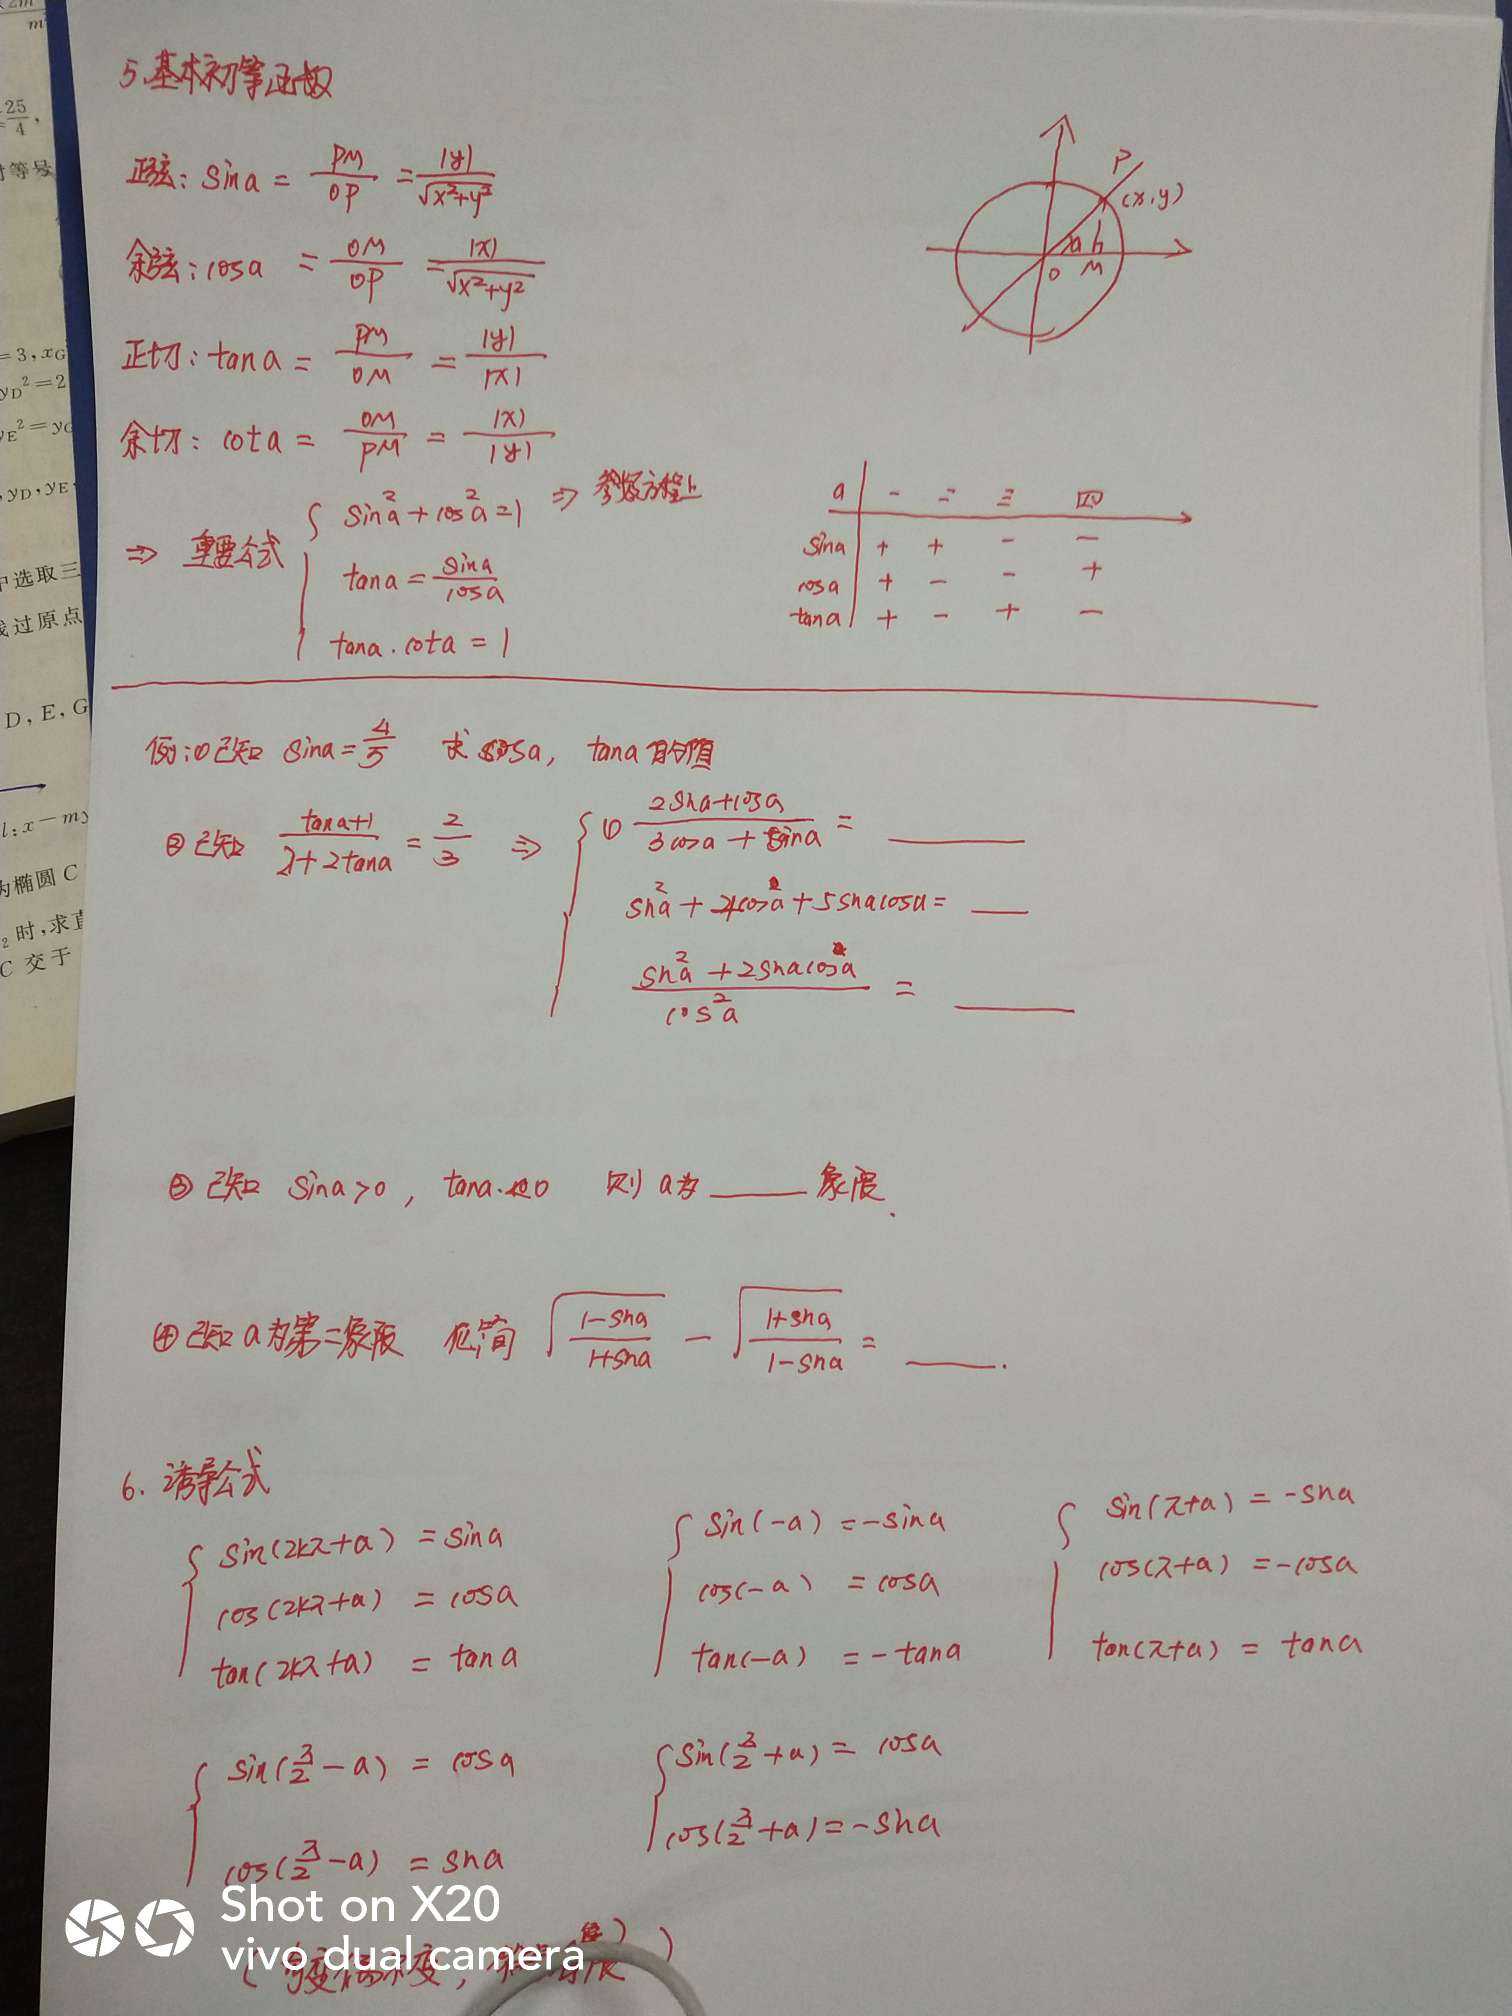 5.基本初等函数
正弦: sina = PM/OP = |y|/√x²+y²
余弦: cosa = OM/OP = |x|/√x²+y²
正切: tana = PM/OM = |y|/|x|
余切: cota = OM/PM = |x|/|y|
P
(x,y)
a
O M
⇒ 重要公式 { sin²a + cos²a = 1 ⇒ 参数方程上
tana = sina/cosa
tana · cota = 1
a 一 二 三 四
sina + + - -
cosa + - - +
tana + - + -
例:① 已知 sina = 4/5 求 cosa, tana 的值
② 已知 (tana+1)/(2+2tana) = 2/3 ⇒ { ① (2sina+cosa)/(3cosa+sina) = ____
sin²a + 4cos²a + 5sinacosa = ____
(sin²a + 2sinacosa)/cos²a = ____
③ 已知 sina>0, tana·<0 则 a为 ____ 象限.
④ 已知 a 为第二象限 化简 √(1-sina)/(1+sina) - √(1+sina)/(1-sina) = ____.
6. 诱导公式
{ sin(2kπ+a) = sina
cos(2kπ+a) = cosa
tan(2kπ+a) = tana
{ sin(-a) = -sina
cos(-a) = cosa
tan(-a) = -tana
{ sin(π+a) = -sina
cos(π+a) = -cosa
tan(π+a) = tana
{ sin(π/2-a) = cosa
cos(π/2-a) = sina
{ sin(π/2+a) = cosa
cos(π/2+a) = -sina
Shot on X20
vivo dual camera
2m
m
25/4,
时等号
=3,xG
yD²=2
yE²=yG
,yD,yE
中选取三
线过原点
D,E,G
l:x-my
为椭圆C
₂时,求直
C 交于